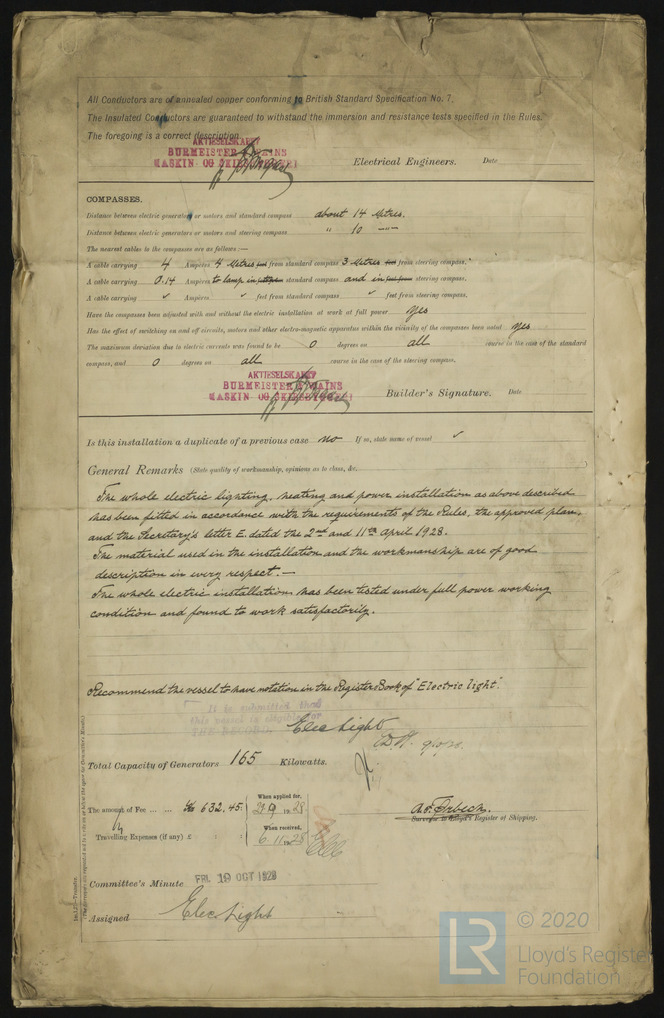 All Conductors are of annealed copper conforming to British Standard Specification No. 7.
The Insulated Conductors are guaranteed to withstand the immersion and resistance tests specified in the Rules.
The foregoing is a correct description.
AKTIESELSKABET
BURMEISTER & WAINS
MASKIN- OG SKIBSBYGGERI
Electrical Engineers. Date
COMPASSES.
Distance between electric generators or motors and standard compass about 14 Metres.
Distance between electric generators or motors and steering compass " 10 —"—
The nearest cables to the compasses are as follows:—
A cable carrying 4 Ampères 4 Metres feet from standard compass 3 Metres feet from steering compass.
A cable carrying 0.14 Ampères to lamp in standard compass and in feet from steering compass.
A cable carrying ✓ Ampères ✓ feet from standard compass ✓ feet from steering compass.
Have the compasses been adjusted with and without the electric installation at work at full power yes
Has the effect of switching on and off circuits, motors and other electro-magnetic apparatus within the vicinity of the compasses been noted yes
The maximum deviation due to electric currents was found to be 0 degrees on all course in the case of the standard
compass, and 0 degrees on all course in the case of the steering compass.
AKTIESELSKABET
BURMEISTER & WAINS
MASKIN- OG SKIBSBYGGERI
Builder's Signature. Date
Is this installation a duplicate of a previous case no If so, state name of vessel ✓
General Remarks (State quality of workmanship, opinions as to class, &c.
The whole electric lighting, heating and power installation as above described
has been fitted in accordance with the requirements of the Rules, the approved plans
and the Secretary's letter E. dated the 2nd and 11th April 1928.
The material used in the installation and the workmanship are of good
description in every respect.—
The whole electric installation has been tested under full power working
condition and found to work satisfactorily.
Recommend the vessel to have notation in the Register Book of "Electric light".
It is submitted that
this vessel is eligible for
THE RECORD.
Elec Light
Total Capacity of Generators 165 Kilowatts.
The amount of Fee ... ... 632.45
When applied for,
Travelling Expenses (if any) £
When received,
6.11.28
Surveyor to Lloyd's Register of Shipping.
Committee's Minute FRI. 19 OCT 1928
Assigned Elec. Light
LR
© 2020
Lloyd's Register
Foundation